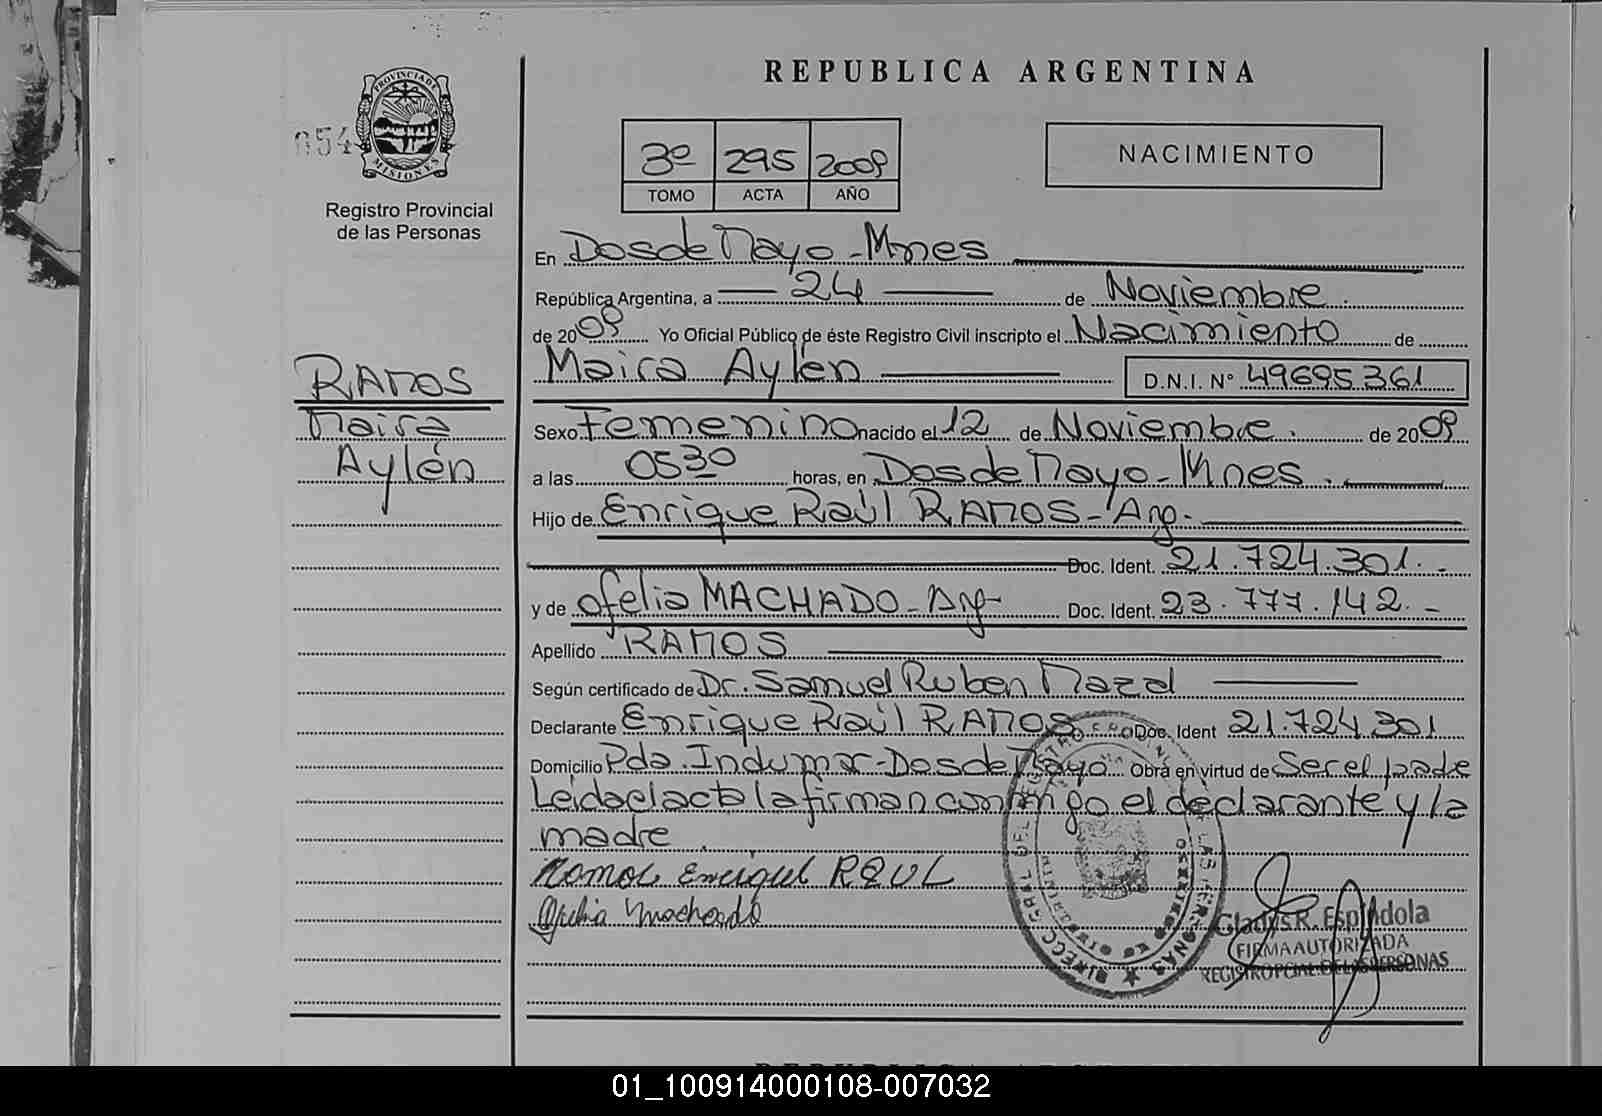 REPUBLICA ARGENTINA
PROVINCIA DE MISIONES
654
Registro Provincial
de las Personas
3º 295 2009
TOMO ACTA AÑO
NACIMIENTO
En Dos de Mayo - Mnes
República Argentina, a 24 de Noviembre.
de 2009 Yo Oficial Público de éste Registro Civil inscripto el Nacimiento de
Maira Aylén D.N.I. N° 49695361
RAMOS
Maira
Aylén
Sexo Femenino nacido el 12 de Noviembre. de 2009
a las 0530 horas, en Dos de Mayo - Mnes.
Hijo de Enrique Raúl RAMOS - Arg.
Doc. Ident. 21.724.301.-
y de Ofelia MACHADO - Arg- Doc. Ident. 23.777.142.-
Apellido RAMOS
Según certificado de Dr. Samuel Ruben
Declarante Enrique Raúl RAMOS Doc. Ident 21.724.301
Domicilio Pda. Indumar - Dos de Mayo Obra en virtud de Ser el padre
Leida el acta la firman conmigo el declarante y la
madre.
Ramos Enrique RAUL
Ofelia Machado
Gladys R. Espíndola
FIRMA AUTORIZADA
REGISTRO PCIAL. DE LAS PERSONAS
01_100914000108-007032